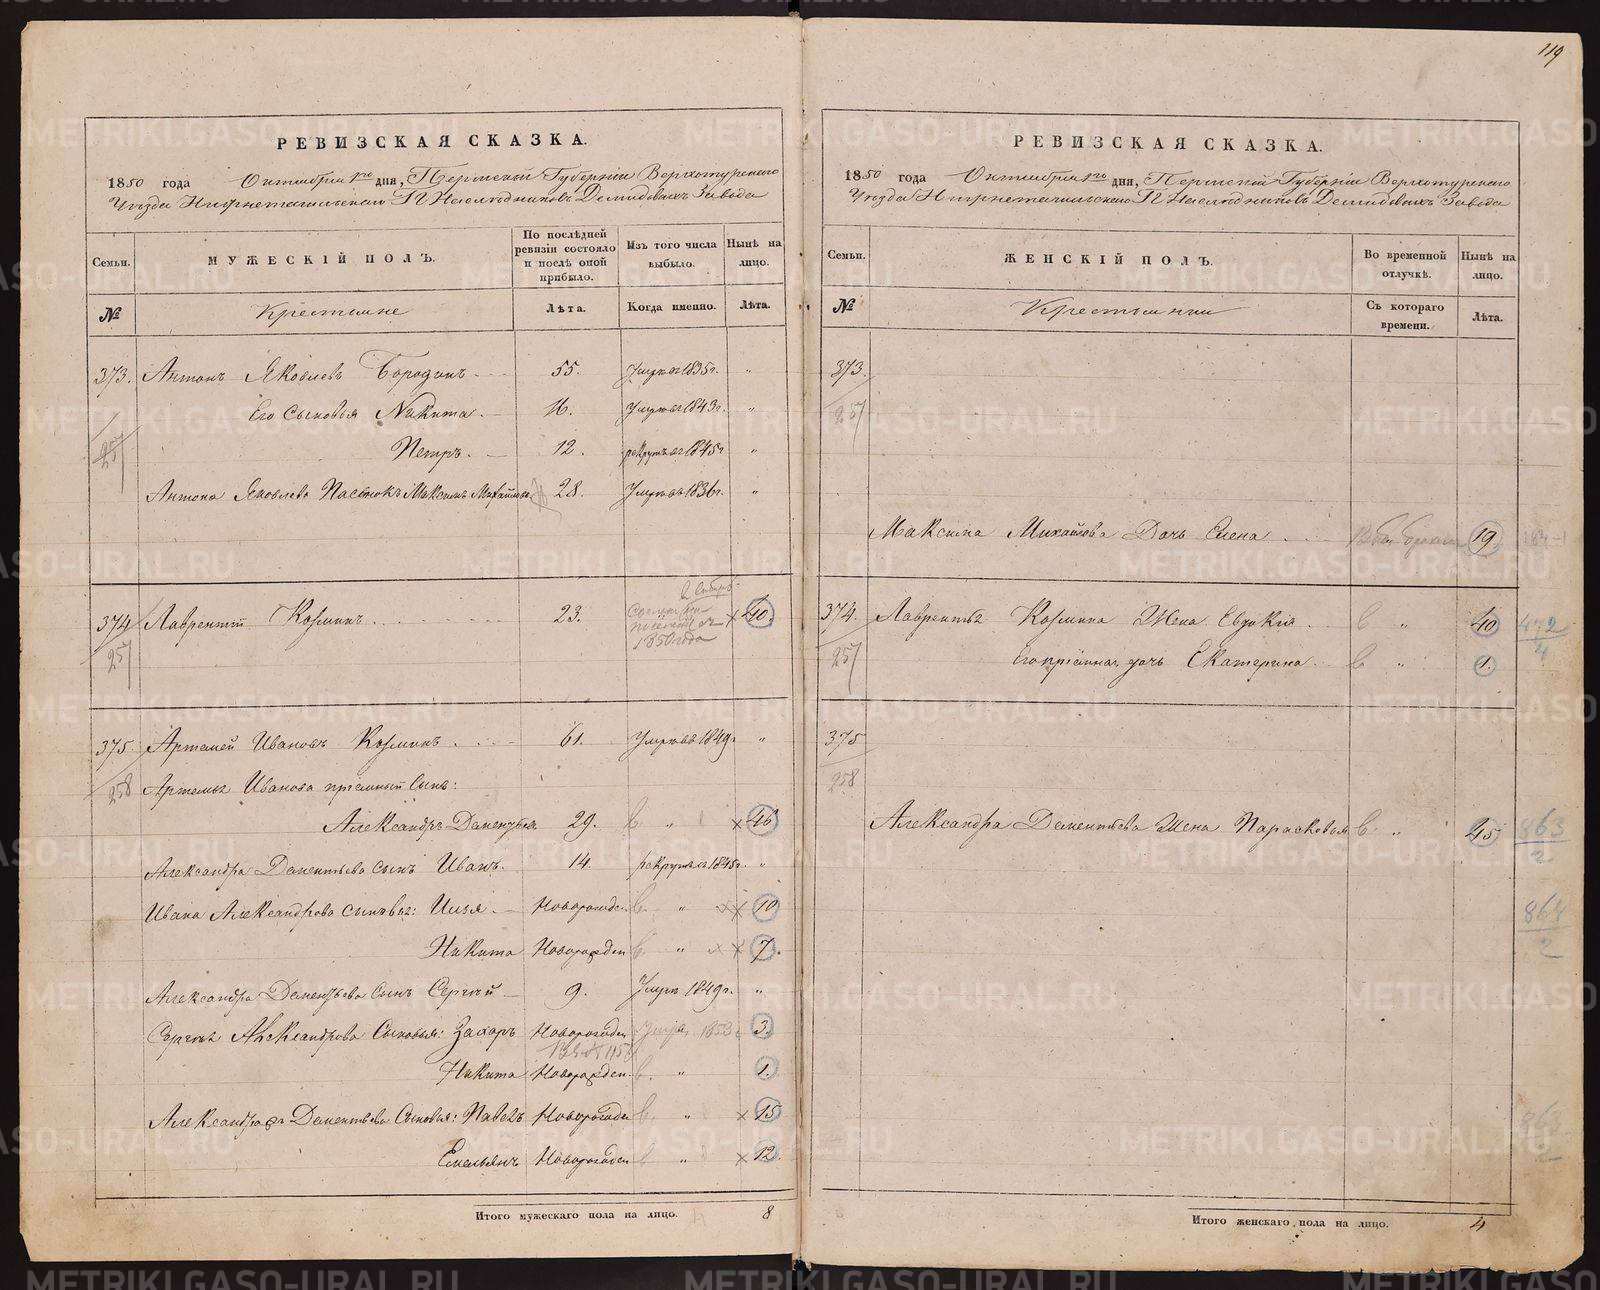 119
РЕВИЗСКАЯ СКАЗКА.
1850 года Октября 1го дня, Пермской Губернiи Верхотурскаго
Уѣзда Нижнетагильскаго ГГ Наслѣдниковъ Демидовыхъ Завода
Семьи.
МУЖЕСКІЙ ПОЛЪ.
По послѣдней ревизіи состояло и послѣ оной прибыло.
Изъ того числа выбыло.
Нынѣ на лицо.
№
Крестьяне
Лѣта.
Когда именно.
Лѣта.
373. Антонъ Яковлевъ Бородинъ 55. Умре въ 1835г. "
257 Его сыновья Никита. 16. Умре въ 1843г. "
Петръ. 12. рекрутъ въ 1845г "
Антона Яковлева Пасынокъ Максимъ Михайловъ 28. Умре въ 1836г. "
374 Лаврентiй Козминъ 23. 1850 года × 40.
257
375. Артемей Ивановъ Козминъ. 61. Умре въ 1849г. "
258 Артемья Иванова прiемный сынъ:
Александръ Дементьевъ 29. " × 46
Александра Дементьева сынъ Иванъ. 14. рекрутъ въ 1845г. "
Ивана Александрова сыновья: Илья. Новорожден. " ×× 10
Никита Новорожден " ×× 7.
Александра Дементьева сынъ Сергѣй 9. Умре 1849г. "
Сергѣя Александрова Сыновья: Захаръ Новорожден 3.
Никита Новорожден. " 1.
Александра Дементьева Сыновья: Павелъ Новорожден " × 15
Емельянъ Новорожден " × 12.
Итого мужескаго пола на лицо. 8
РЕВИЗСКАЯ СКАЗКА.
1850 года Октября 1го дня, Пермской Губернiи Верхотурскаго
Уѣзда Нижнетагильскаго ГГ Наслѣдниковъ Демидовыхъ Завода
Семьи.
ЖЕНСКІЙ ПОЛЪ.
Во временной отлучкѣ.
Нынѣ на лицо.
№
Крестьянки
Съ котораго времени.
Лѣта.
373.
257
Максима Михайлова Дочь Елена 19.
374. Лаврентья Козмина Жена Евдокiя. " 40 472
257 Его прiемная дочь Екатерина. " 1. 4
375
258
Александра Дементьева Жена Парасковья " 45 863
2
864
2
863
2
Итого женскаго пола на лицо. 4
METRIKI.GASO-URAL.RU